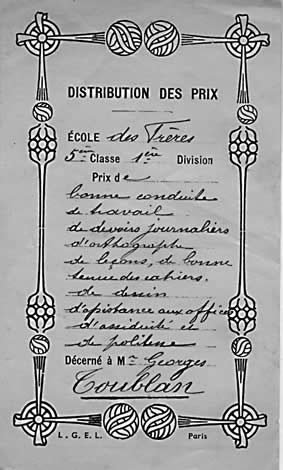 DISTRIBUTION DES PRIX
ÉCOLE des Frères
5ème Classe 1ère Division
Prix de
bonne conduite
de travail
de devoirs journaliers
d'orthographe
de leçons, de bonne
tenue des cahiers.
de dessin
d'assistance aux offices
d'assiduité et
de politesse
Décerné à Mr Georges
Toublan
L. G. E. L. Paris